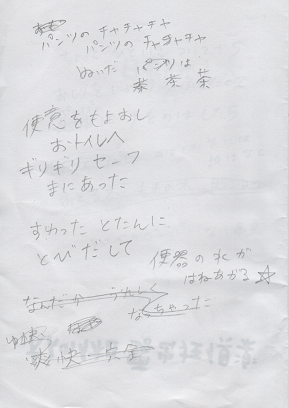 パンツの チャチャチャ
パンツの チャチャチャ
ぬいだ パンツは
茶 茶 茶
便意をもよおし
おトイレへ
ギリギリ セーフ
まにあった
すわった とたんに
とびだして
便器の水が
はねあがる☆
なんだか うれしく
なっちゃった
爽快